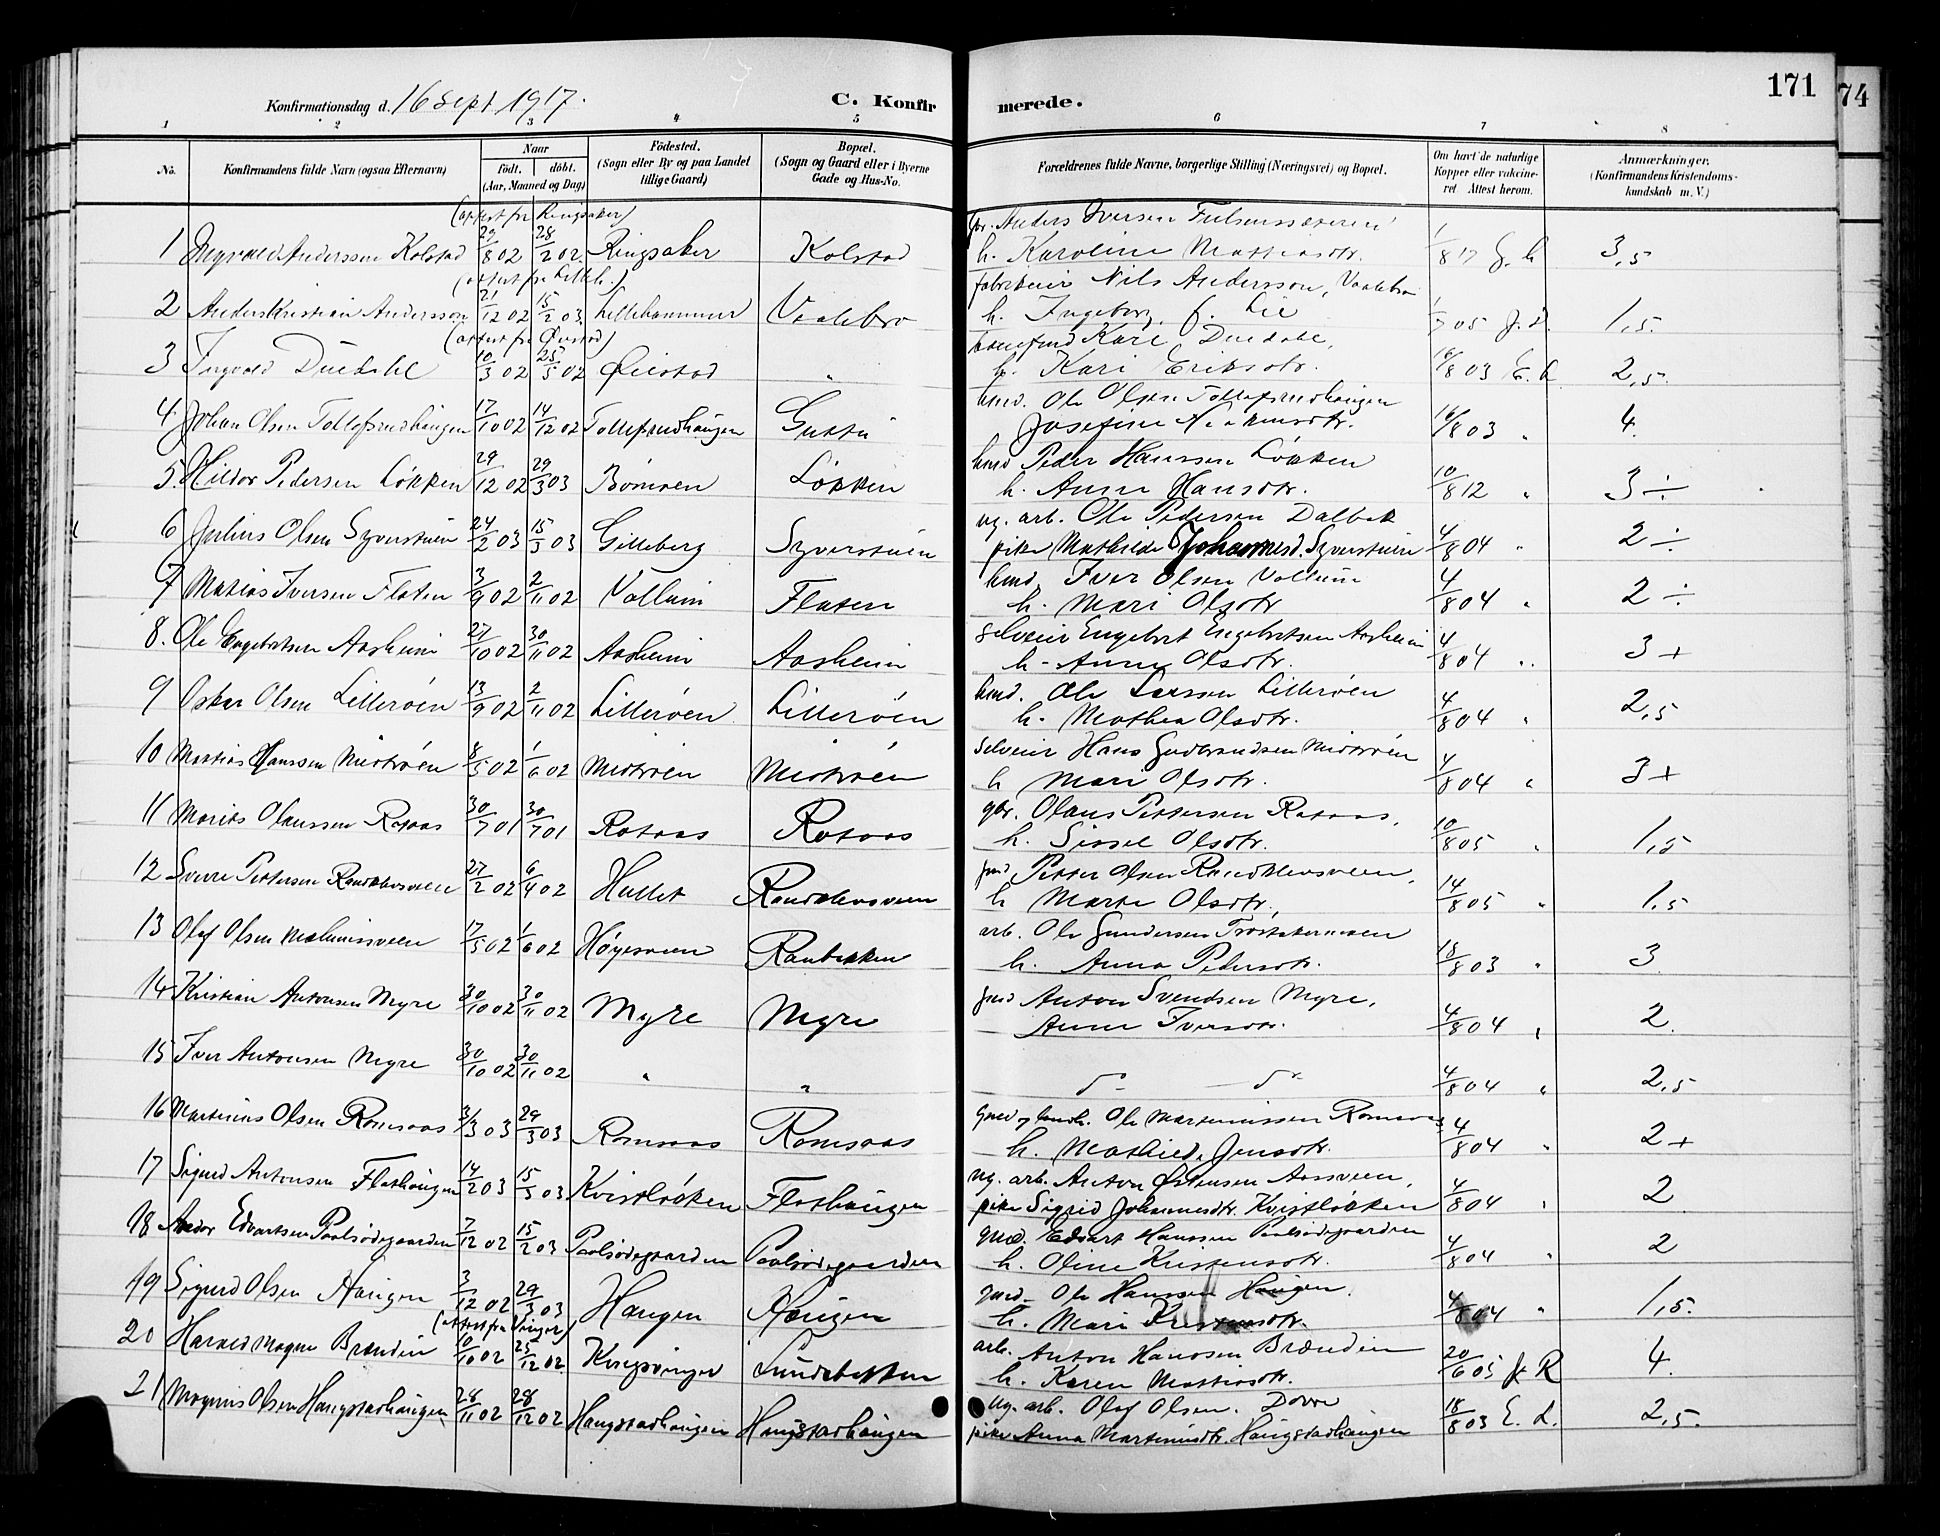 171
74
Konfirmationsdag d. 16 Sept 1917.
C. Konfirmerede.
1 2 3 4 5 6 7 8
No. Konfirmandens fulde Navn (ogsaa Efternavn) Naar født. døbt. (Aar, Maaned og Dag) Fødested. (Sogn eller By og paa Landet tillige Gaard) Bopæl. (Sogn og Gaard eller i Byerne Gade og Hus-No. Forældrenes fulde Navne, borgerlige Stilling (Næringsvei) og Bopæl. Om havt de naturlige Kopper eller vaccineret Attest herom. Anmærkninger. (Konfirmandens Kristendomskundskab m. V.)
(attest fra Ringsaker) Anders Iversen
1 Anderssen Kolstad 8 02 28/2 02 Ringsaker Kolstad h. Karoline 1/8 17 3,5
(attest fra Lilleh.) fabrikeier Nils Andersson, Vaalebro
2 Anders Kristian Andersson 21/12 02 15/2 03 Lillehammer Vaalebro h. Ingeborg f. Lie 05 1,5.
(attest fra Øiestad) Kari Duedahl,
3 Ingvald Duedahl 10/3 02 25/5 02 Øiestad " h. Kari Eriksdtr. 16/8 03 2,5.
hmd. Ole Olsen Tollefsrudhaugen
4 Johan Olsen Tollefsrudhaugen 17/10 02 14/12 02 Tollefsrudhaugen Josefine 16/8 03 " 4.
hmd Peder Hanssen Løkken
5. Hildor Pedersen Løkken 29/12 02 29/3 03 Løkken h. Anne Hansdtr. 10/8 12 " 3 ÷
ug. arb. Ole Pedersen Dalbak
6 Julius Olsen Syverstuen 24/2 03 15/3 03 Gilleberg Syverstuen pike Mathilde Johannesd. Syverstuen 4/8 04 " 2 ÷
hmd. Iver Olsen Vollum
7 Matias Iversen Flaten 3/9 02 2/11 02 Vollum Flaten h. Mari Olsdtr 4/8 04 " 2 ÷
selveier Engebret Engebretsen Aasheim
8. Ole Engebretsen Aasheim 27/10 02 30/11 02 Aasheim Aasheim h. Anne Olsdtr. 4/8 04 " 3 +
hmd. Ole Larssen Lillerøen
9 Oskar Olsen Lillerøen 13/9 02 2/11 02 Lillerøen Lillerøen h. Mathea Olsdtr. 4/8 04 " 2,5
selveier Hans Gudbrandsen Midtrøen
10 Mathias Hanssen Midtrøen 8/5 02 1/6 02 Midtrøen Midtrøen h Mari Olsdtr. 4/8 04 " 3 +
gbr. Olaus Pettersen Rotaas,
11 Olaussen Rotaas 30/7 01 30/7 01 Rotaas Rotaas h. Sissel Olsdtr. 10/8 05 " 1,5
Petter Olsen Randklevsveen,
12 Sverre Pettersen Randklevsveen 27/2 02 6/4 02 Hullet Randklevsveen h Marte Olsdtr, 14/8 05 " 1,5
arb. Ole Gundersen
13 Olaf Olsen 17/5 02 1/6 02 Høyesveen Raubekken h. Anna Pedersdtr. 18/8 03 " 3
Anton Svendsen Myre,
14 Kristian Antonsen Myre 30/10 02 30/11 02 Myre Myre Anne Iversdtr. 4/8 04 " 2.
15 Iver Antonsen Myre 30/10 02 30/11 02 " " do do 4/8 04 " 2,5
Ole Martinussen Romsaas
16 Martinus Olsen Romsaas 3/3 03 29/3 03 Romsaas Romsaas h. Mathilde Jensdtr. 4/8 04 " 2 +
ug. arb. Anton Østensen Aassveen,
17 Sigurd Antonsen Flathaugen 14/2 03 15/3 03 Kvistløkken Flathaugen pike Sigrid Johannesdtr. Kvistløkken 4/8 04 " 2
Edvart Hanssen Paalsødegaarden
18 Andor Edvartsen Paalsødegaarden 7/12 02 15/2 03 Paalsødegaarden Paalsødegaarden h. Oline Kristensdtr. 4/8 04 " 2
Ole Hanssen Haugen.
19 Sigurd Olsen Haugen 3/12 02 29/3 03 Haugen Haugen h. Mari 4/8 04 " 1,5.
(attest fra Vinger) arb. Anton Hanssen Brænden
20 Harald Magne Brænden 10 02 25/12 02 Kongsvinger Sundebakken h. Karen Mathiasdtr. 20/6 05 4.
Ug. arb. Olaf Olsen. Dovre
21 Magnus Olsen Haugstadhaugen 28/11 02 28/12 02 Haugstadhaugen Haugstadhaugen pike Anna Martinusdtr. Haugstadhaugen 18/8 03 E. L. 2,5.